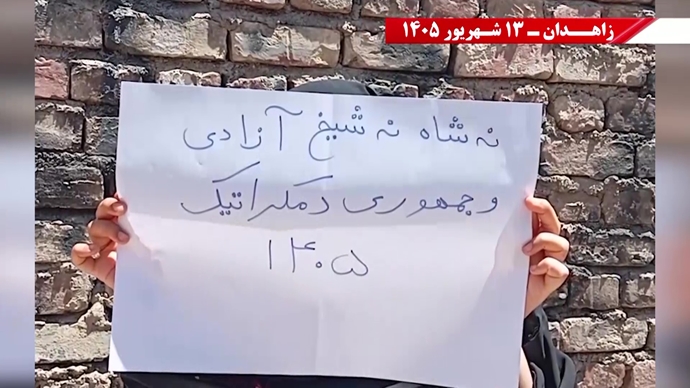 زاهـدان ـ ۱۳ شهریور ۱۴۰۵
نه شاه نه شیخ آزادی
و جمهوری دمکراتیک
۱۴۰۵